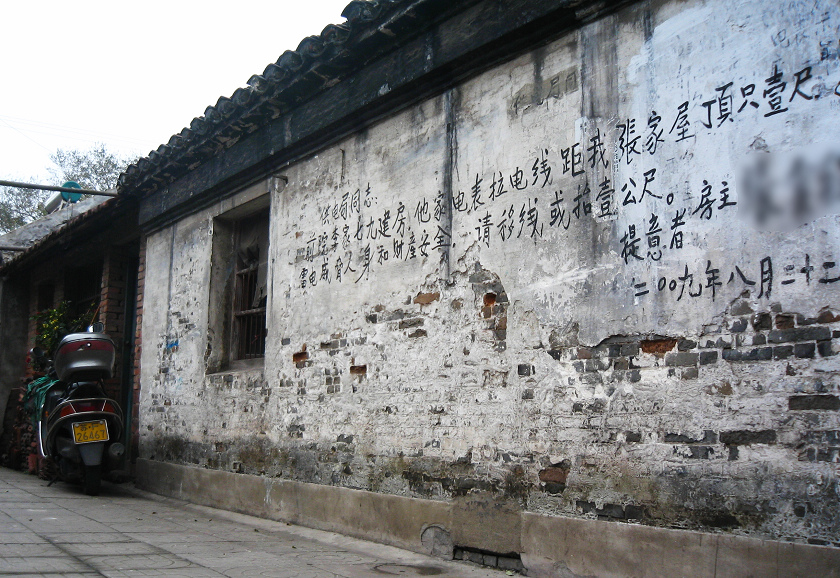 供电局同志:
前院李家七九建房,他家电表拉电线距我張家屋頂只壹尺。
雷电威脅人身和财産安全,请移线或抬壹公尺。房主
提意者
二00九年八月二十二
26461